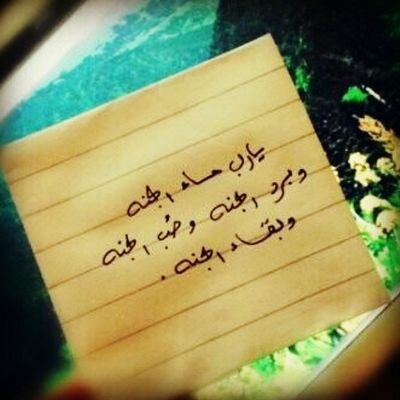 يارب مساء الجنه
وبرد الجنه وحُب الجنه
وبقاء الجنه .